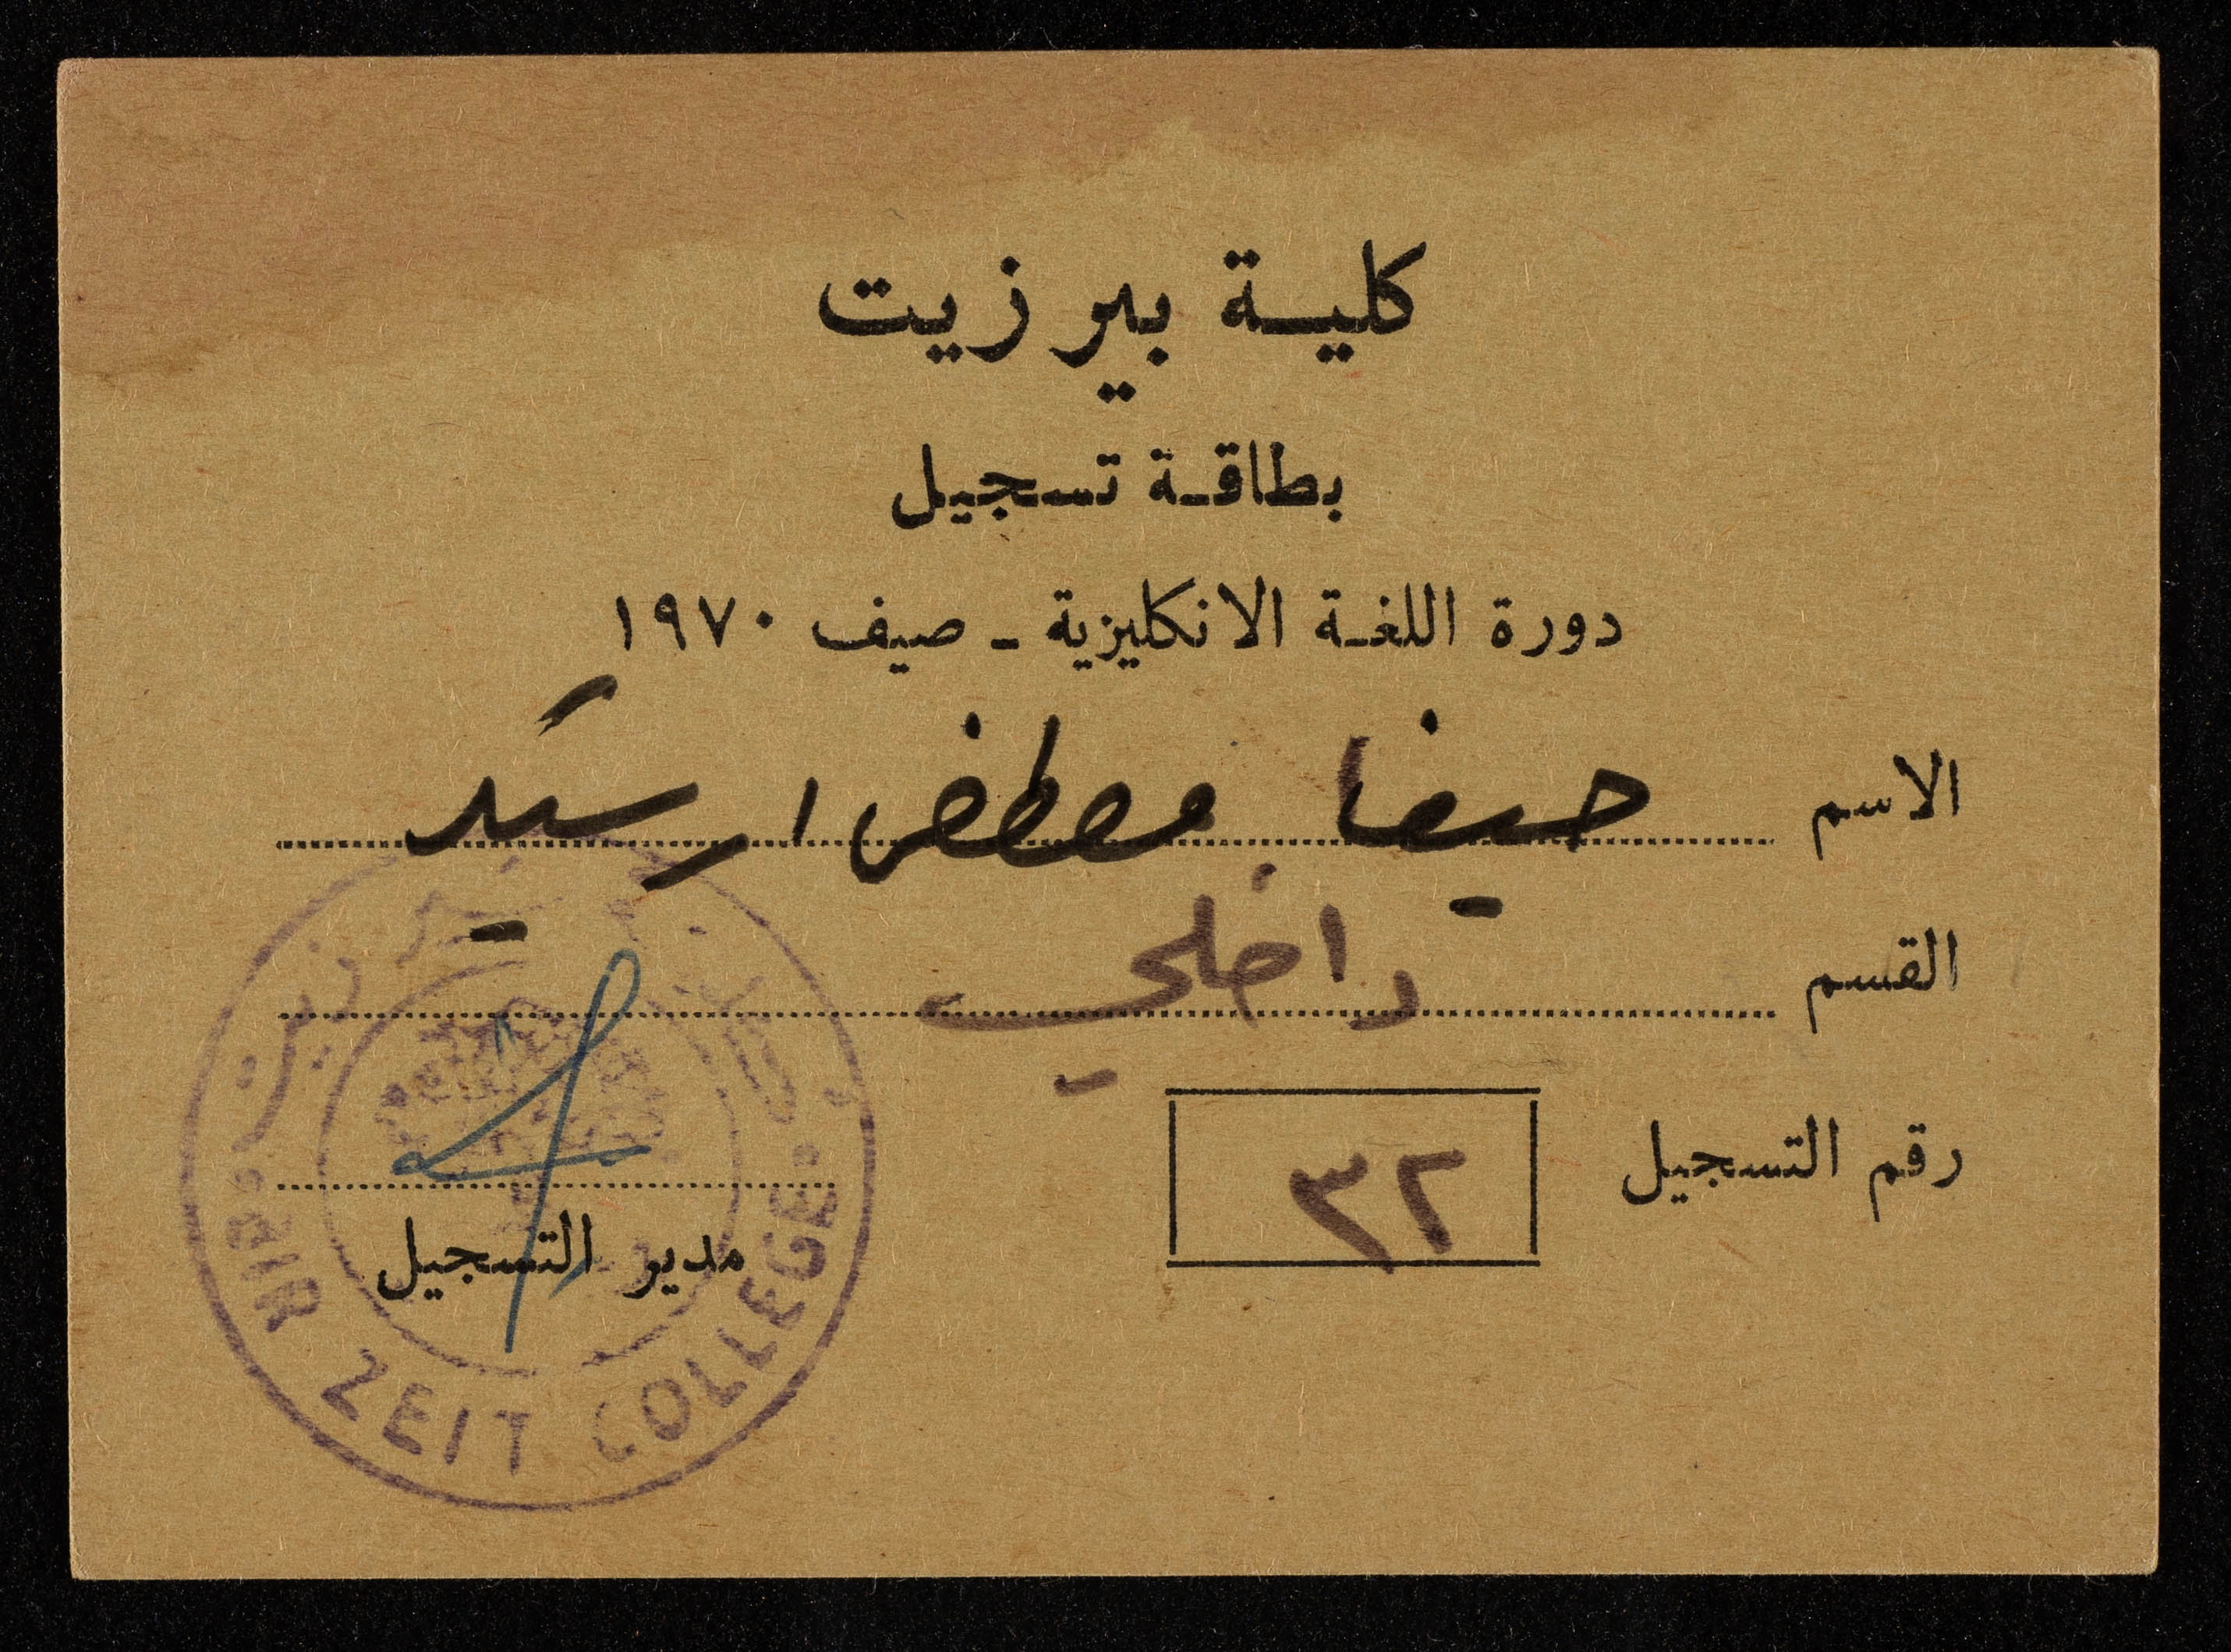 كلية بير زيت
بطاقة تسجيل
دورة اللغة الانكليزية - صيف ١٩٧٠
الاسم حيفا مصطفى ارشيد
القسم داخلي
رقم التسجيل ٣٢
مدير التسجيل
كلية بير زيت
BIR ZEIT COLLEGE